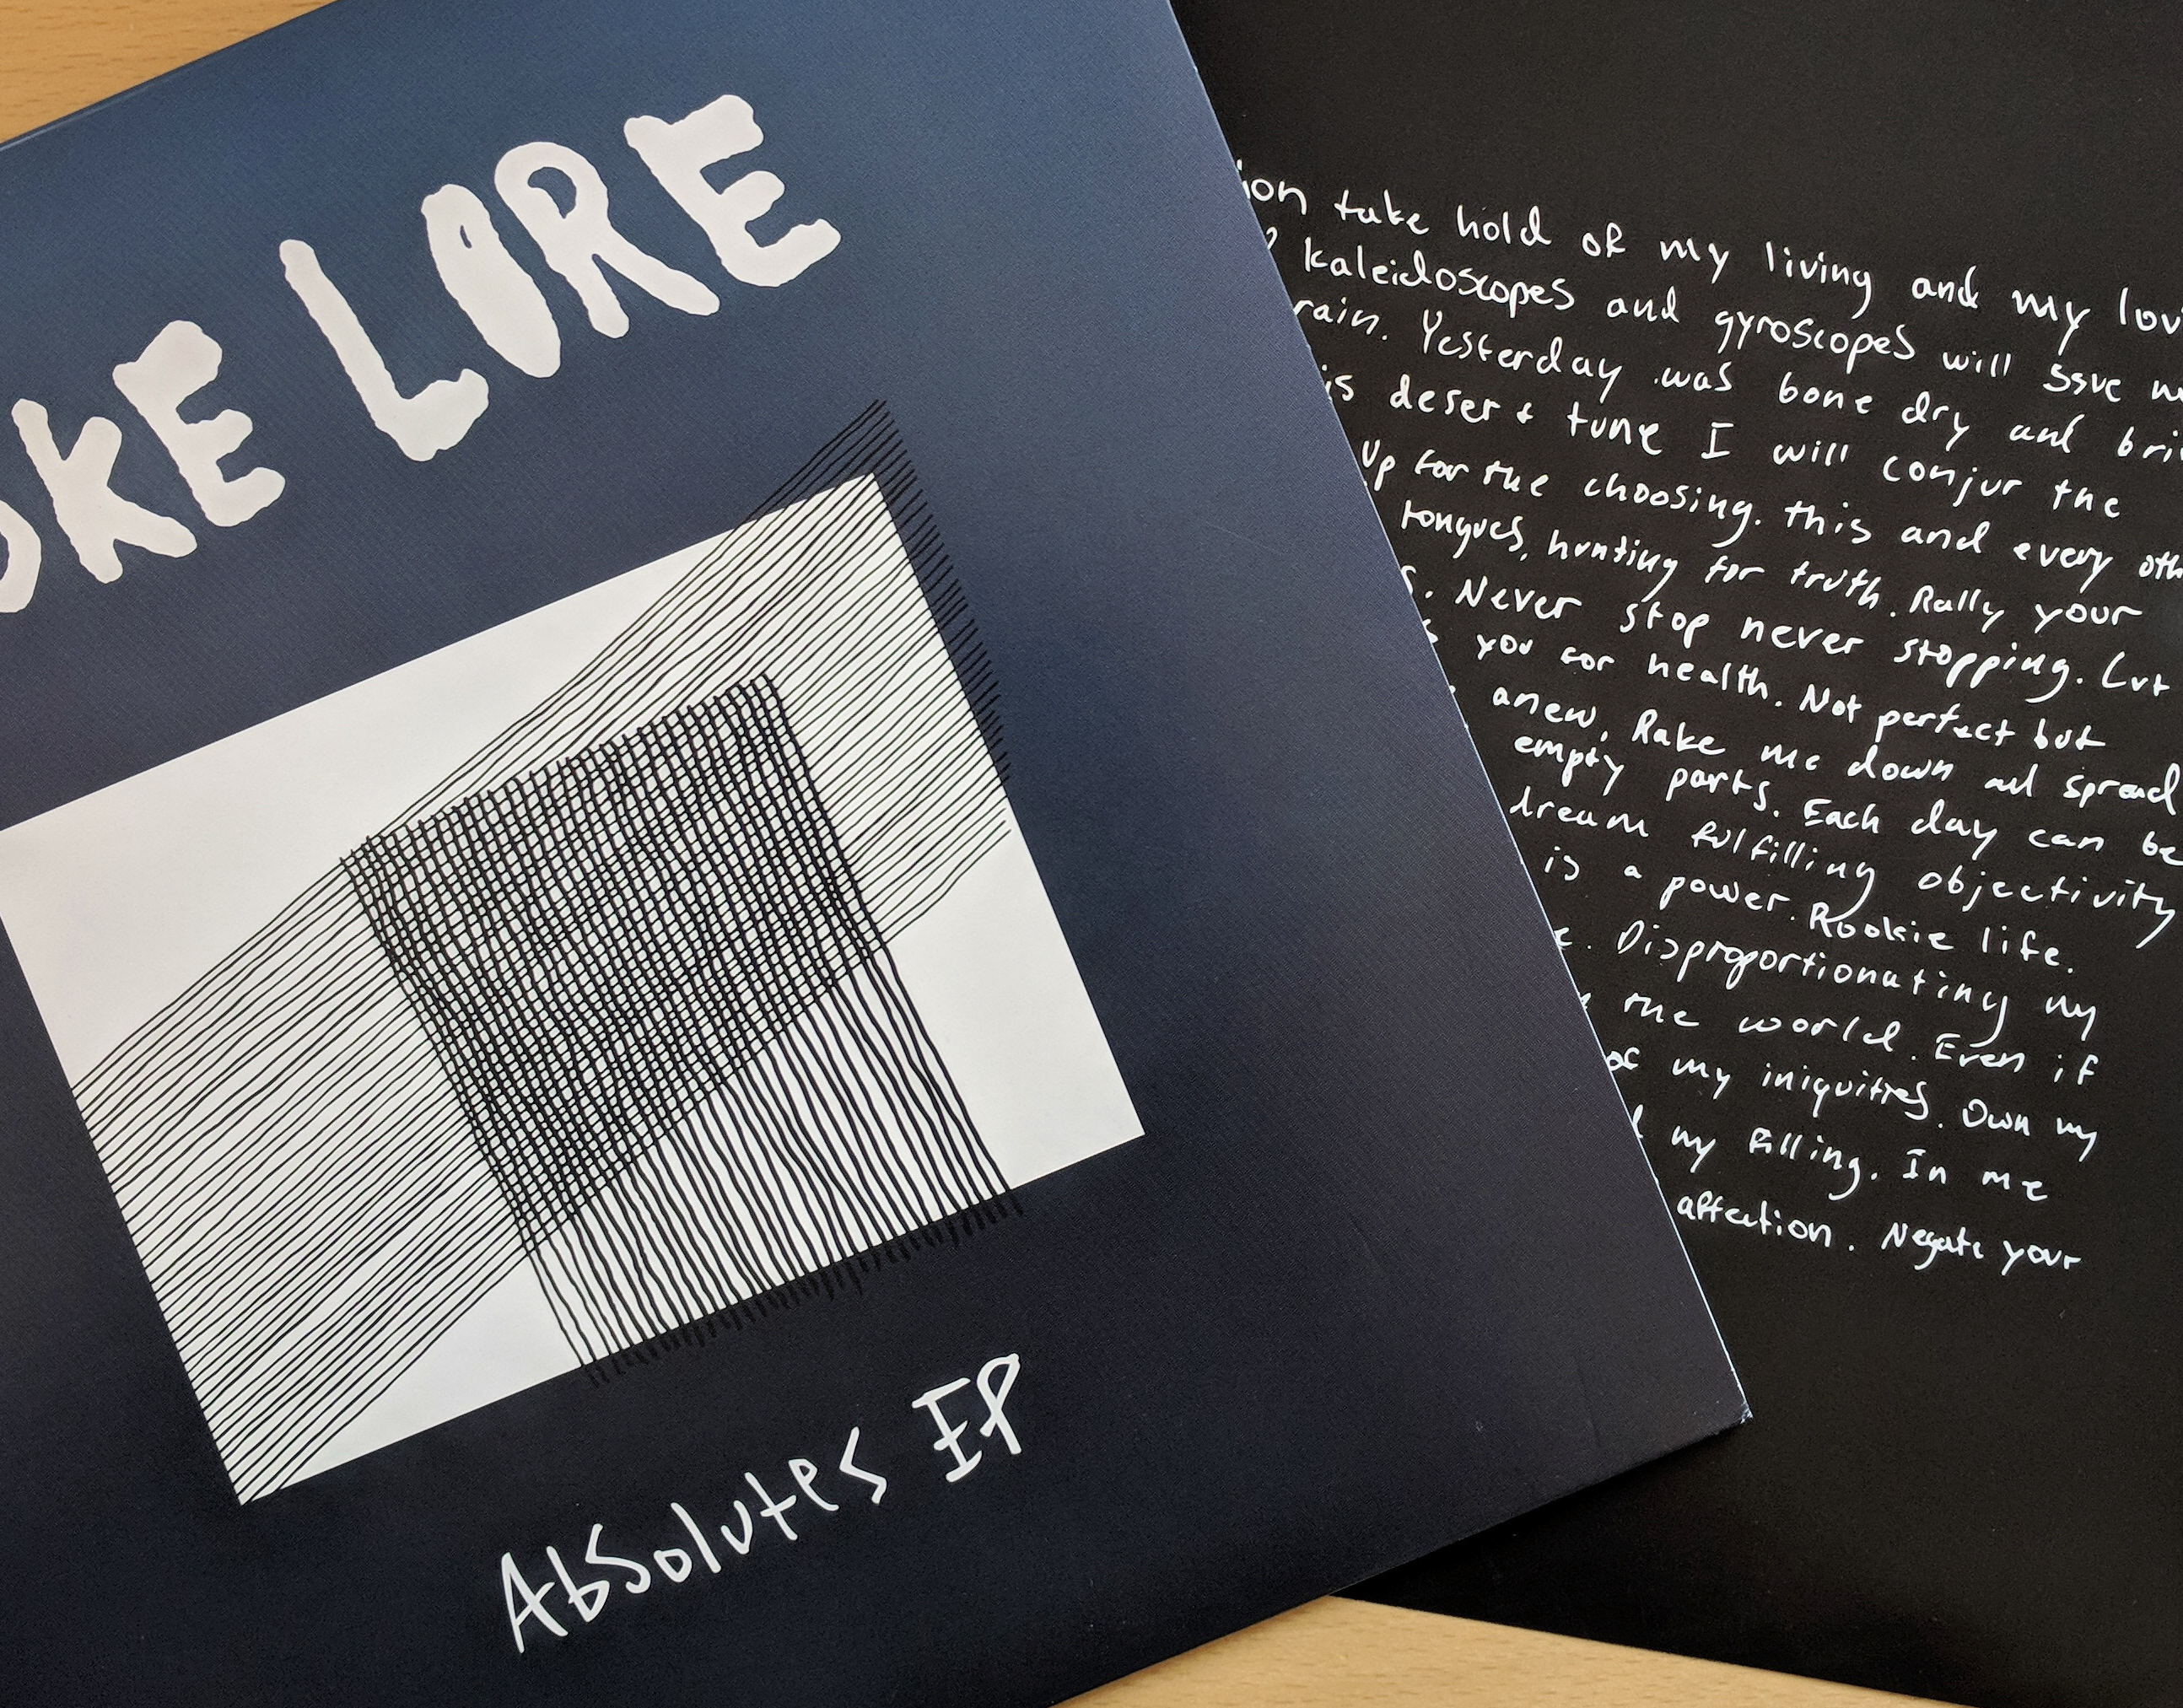 OKE LORE
Absolutes EP
ion take hold of my living and my lov
kaleidoscopes and gyroscopes will ssve
rain. Yesterday was bone dry and bri
is desert tune I will conjur the
up for the choosing. this and every oth
tongues, hunting for truth. Rally your
s. Never stop never stopping. Cut
you for health. Not perfect but
anew. Rake me down and spread
empty parts. Each day can be
dream fulfilling objectivity
is a power. Rookie life.
e. Disproportionating my
the world. Even if
of my iniquities. Own my
my filling. In me
affection. Negate your